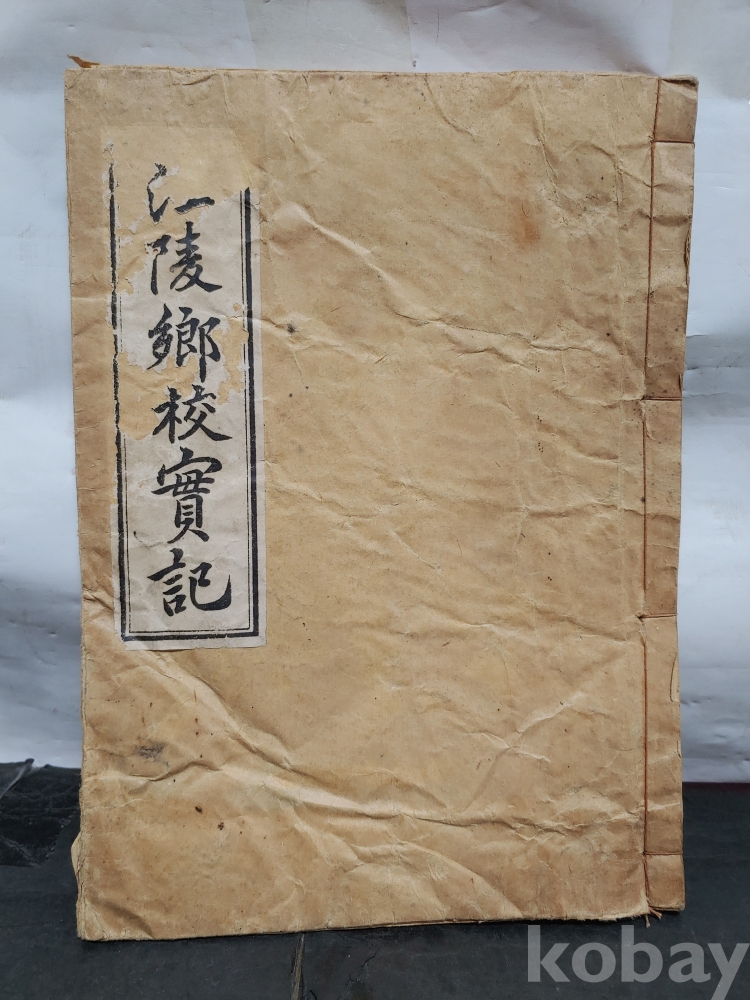 江陵鄕校實記
kobay